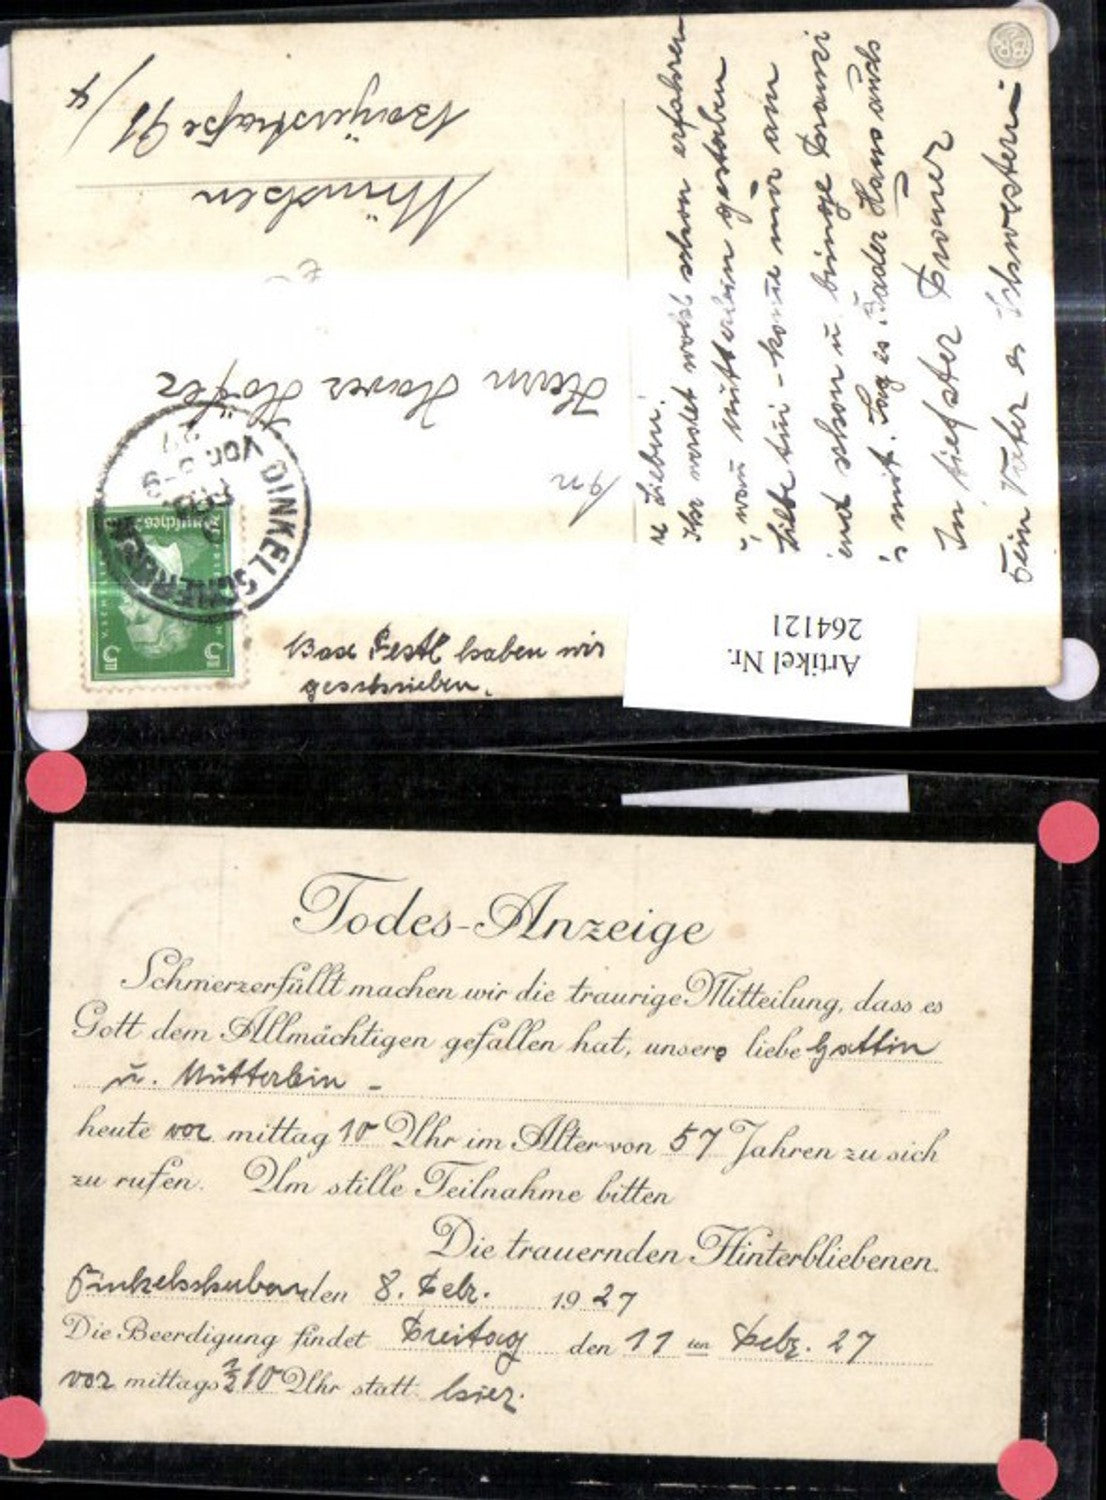 An
Herrn Xaver Höfer
München
Bayerstraße 91/4
DINKELSCHERBEN
VOR.
Deutsches
5 5
Base Festl haben wir
geschrieben.
BR
Lieben.
Ihr werdet wohl schon erfahren
Mütterlein gestorben
Liebe - komme nur am
schon u bringe Franzi
mit. Sag es Hans auch
In tiefster Trauer
Dein Vater & Schwestern
Artikel Nr.
264121
Todes-Anzeige
Schmerzerfüllt machen wir die traurige Mitteilung, dass es
Gott dem Allmächtigen gefallen hat, unsere liebe Gattin
u. Mütterlein -
heute vor mittag 10 Uhr im Alter von 57 Jahren zu sich
zu rufen. Um stille Teilnahme bitten
Die trauernden Hinterbliebenen.
Dinkelscherben, den 8. Febr. 1927
Die Beerdigung findet Freitag den 11 ten Febr. 27
vor mittags ½10 Uhr statt. hier.